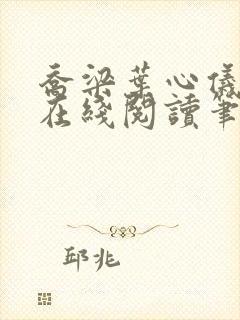 喬梁葉心儀
在綫閱讀筆
邱兆